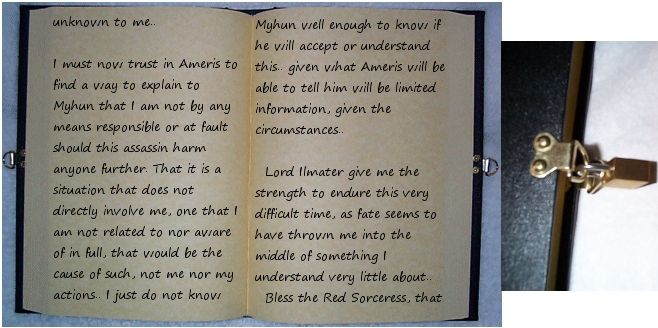 unknown to me..
I must now trust in Ameris to
find a way to explain to
Myhun that I am not by any
means responsible or at fault
should this assassin harm
anyone further. That it is a
situation that does not
directly involve me, one that I
am not related to nor aware
of in full, that would be the
cause of such, not me nor my
actions.. I just do not know
Myhun well enough to know if
he will accept or understand
this.. given what Ameris will be
able to tell him will be limited
information, given the
circumstances..
Lord Ilmater give me the
strength to endure this very
difficult time, as fate seems to
have thrown me into the
middle of something I
understand very little about..
Bless the Red Sorceress, that